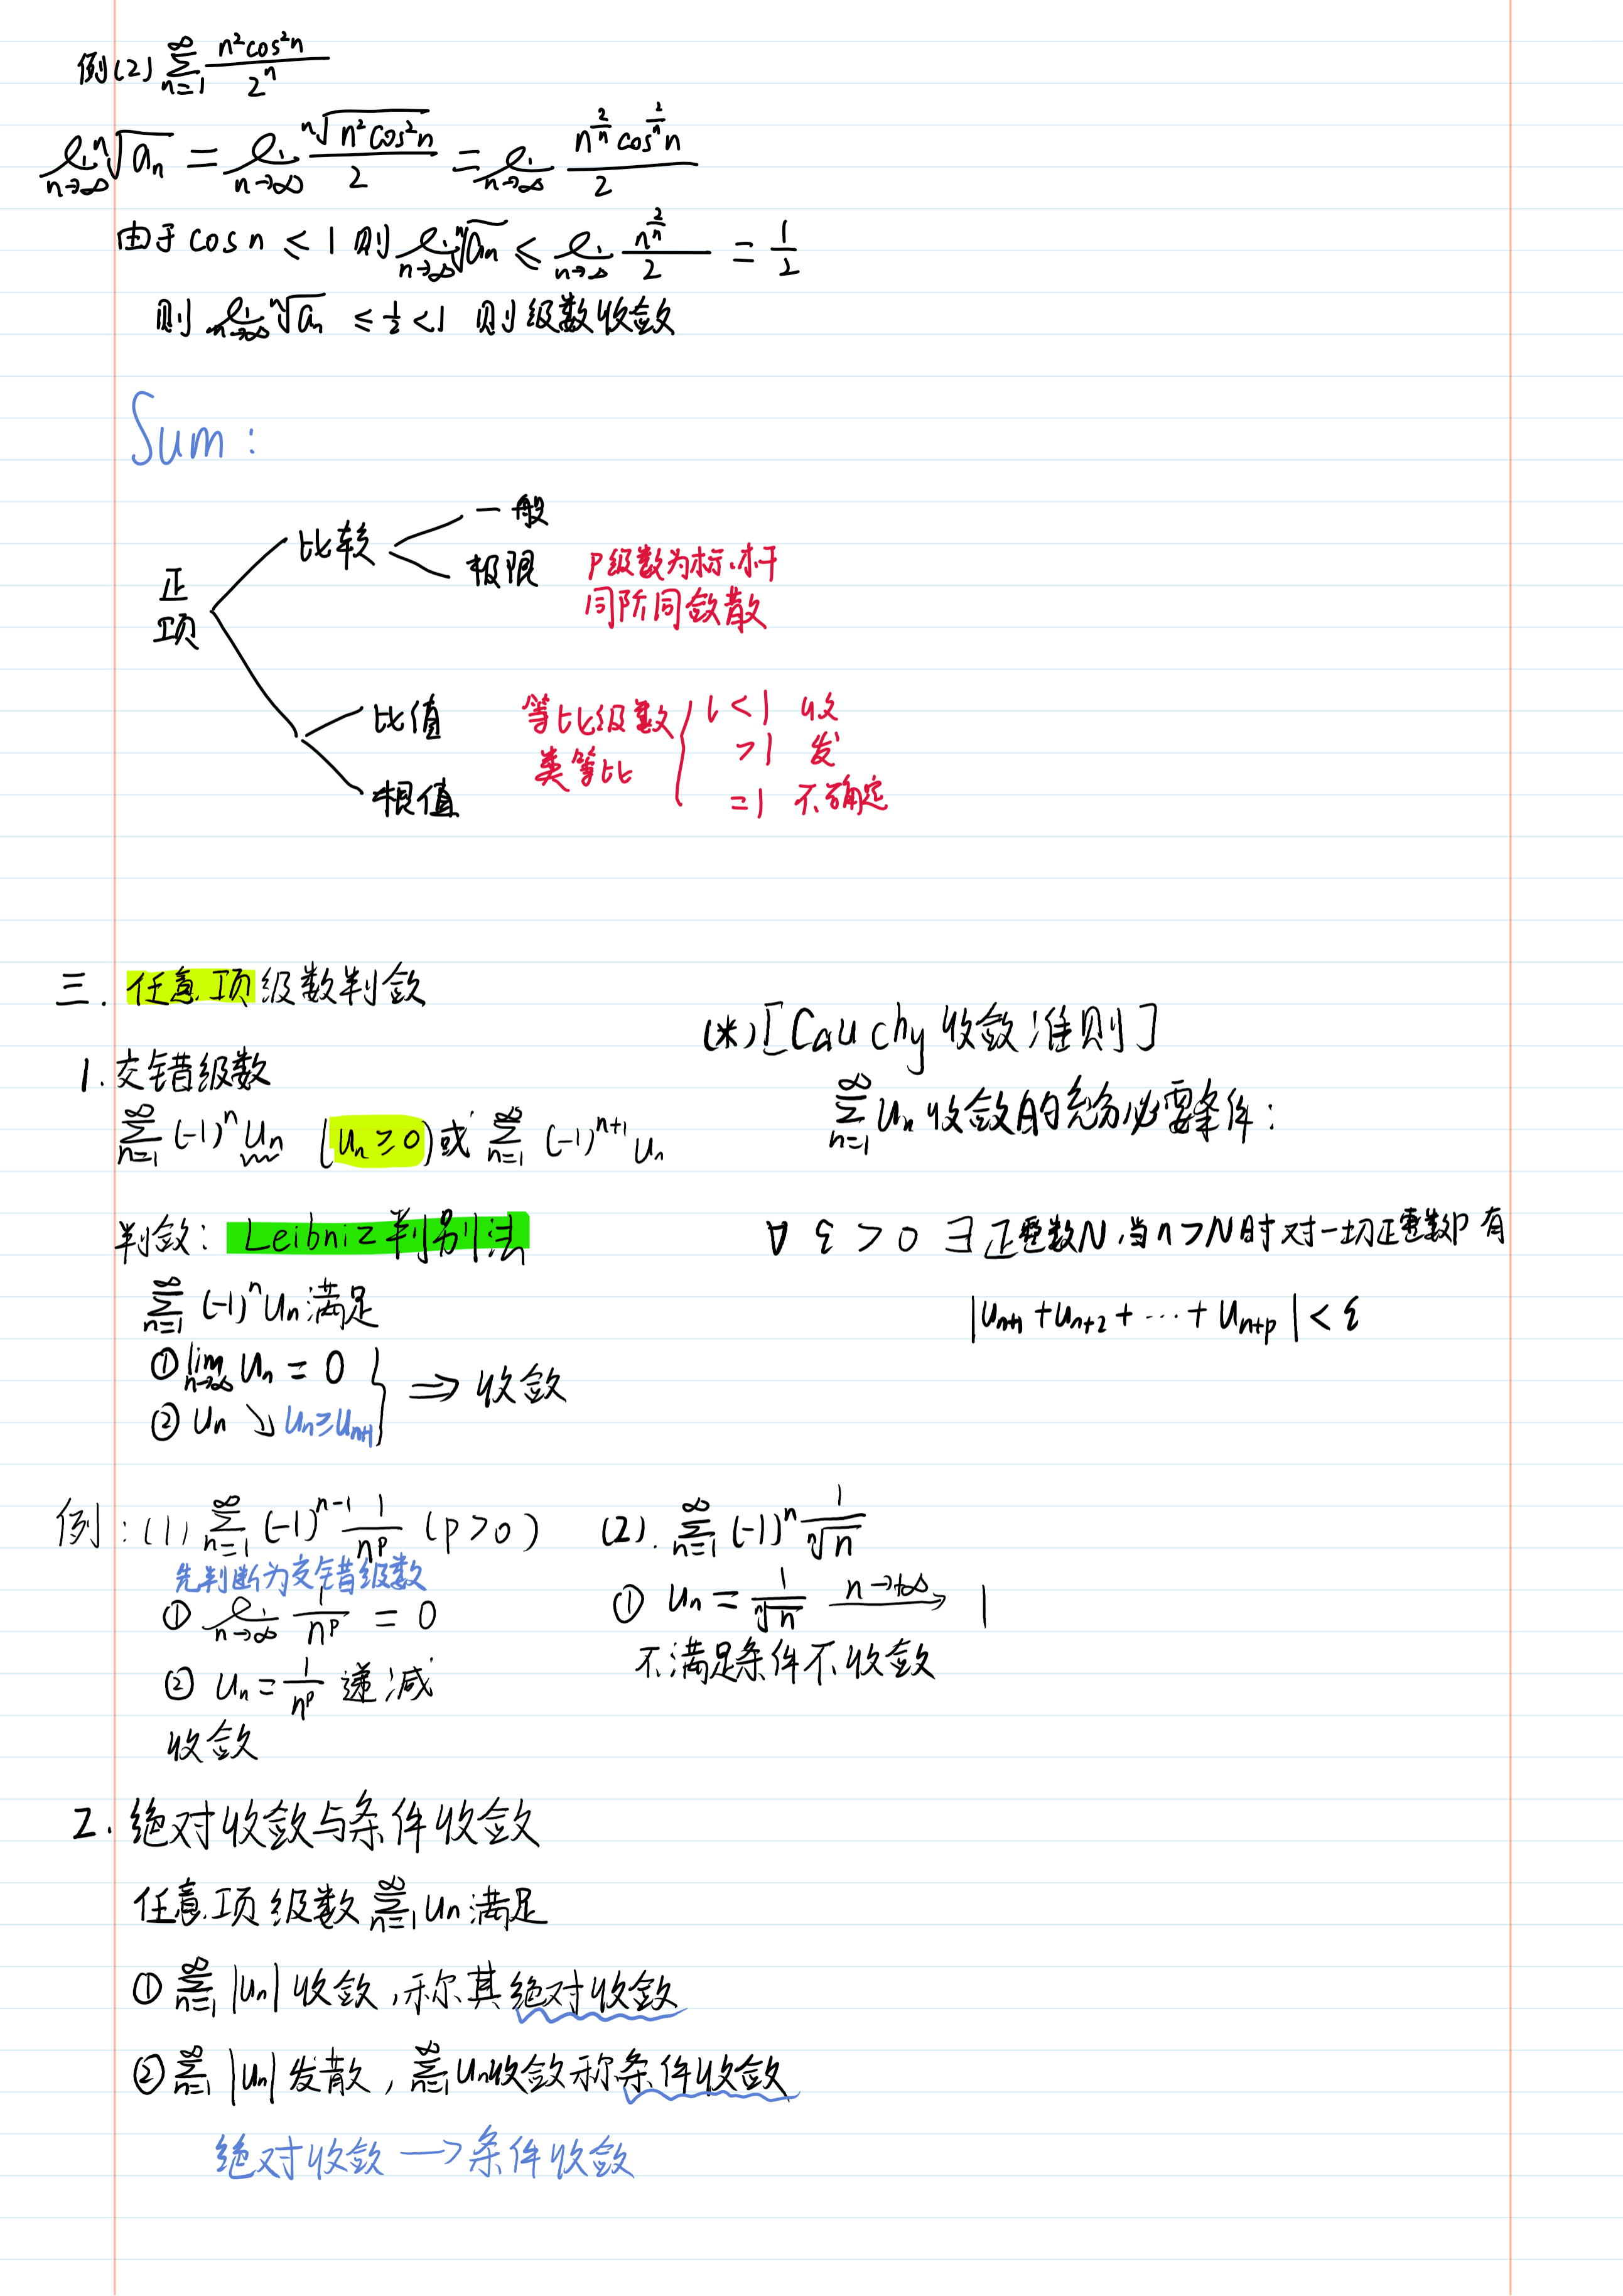 例(2) ∑_{n=1}^{∞} n²cos²n / 2^n
lim_{n→∞} ⁿ√a_n = lim_{n→∞} ⁿ√(n²cos²n) / 2 = lim_{n→∞} n^{2/n} cos^{2/n} n / 2
由于 cos n ≤ 1 则 lim_{n→∞} ⁿ√a_n ≤ lim_{n→∞} n^{2/n} / 2 = 1/2
则 lim_{n→∞} ⁿ√a_n ≤ 1/2 < 1 则级数收敛
Sum：
正项
比较
一般
极限
P级数为标杆
同阶同敛散
比值
根值
等比级数
类等比
l < 1 收
> 1 发
= 1 不确定
三. 任意项级数判敛
1. 交错级数
∑_{n=1}^{∞} (-1)^n u_n (u_n ≥ 0) 或 ∑_{n=1}^{∞} (-1)^{n+1} u_n
判敛： Leibniz判别法
∑_{n=1}^{∞} (-1)^n u_n 满足
① lim_{n→∞} u_n = 0
② u_n ↘ u_n ≥ u_{n+1}
⇒ 收敛
(*) [Cauchy 收敛准则]
∑_{n=1}^{∞} u_n 收敛的充分必要条件：
∀ ε > 0 ∃ 正整数N, 当 n > N 时对一切正整数P 有
|u_{n+1} + u_{n+2} + ··· + u_{n+p}| < ε
例：(1) ∑_{n=1}^{∞} (-1)^{n-1} 1/n^p (p > 0)
先判断为交错级数
① lim_{n→∞} 1/n^p = 0
② u_n = 1/n^p 递减
收敛
(2). ∑_{n=1}^{∞} (-1)^n 1/ⁿ√n
① u_n = 1/ⁿ√n —n→+∞→ 1
不满足条件不收敛
2. 绝对收敛与条件收敛
任意项级数 ∑_{n=1}^{∞} u_n 满足
① ∑_{n=1}^{∞} |u_n| 收敛, 称其绝对收敛
② ∑_{n=1}^{∞} |u_n| 发散, ∑_{n=1}^{∞} u_n 收敛称条件收敛
绝对收敛 → 条件收敛